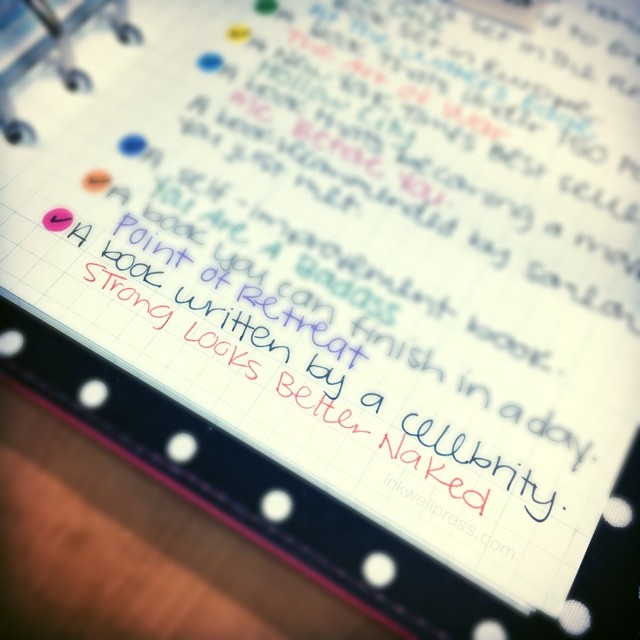 book set in Europe.
The Art of War
A New York Times Best selle
Hollow City
A book that's becoming a mo
Me Before You
A book recommended by someo
you just met.
A self-improvement book.
You Are A Badass
A book you can finish in a day.
Point of Retreat
A book written by a celebrity.
Strong Looks Better Naked
inkwellpress.com